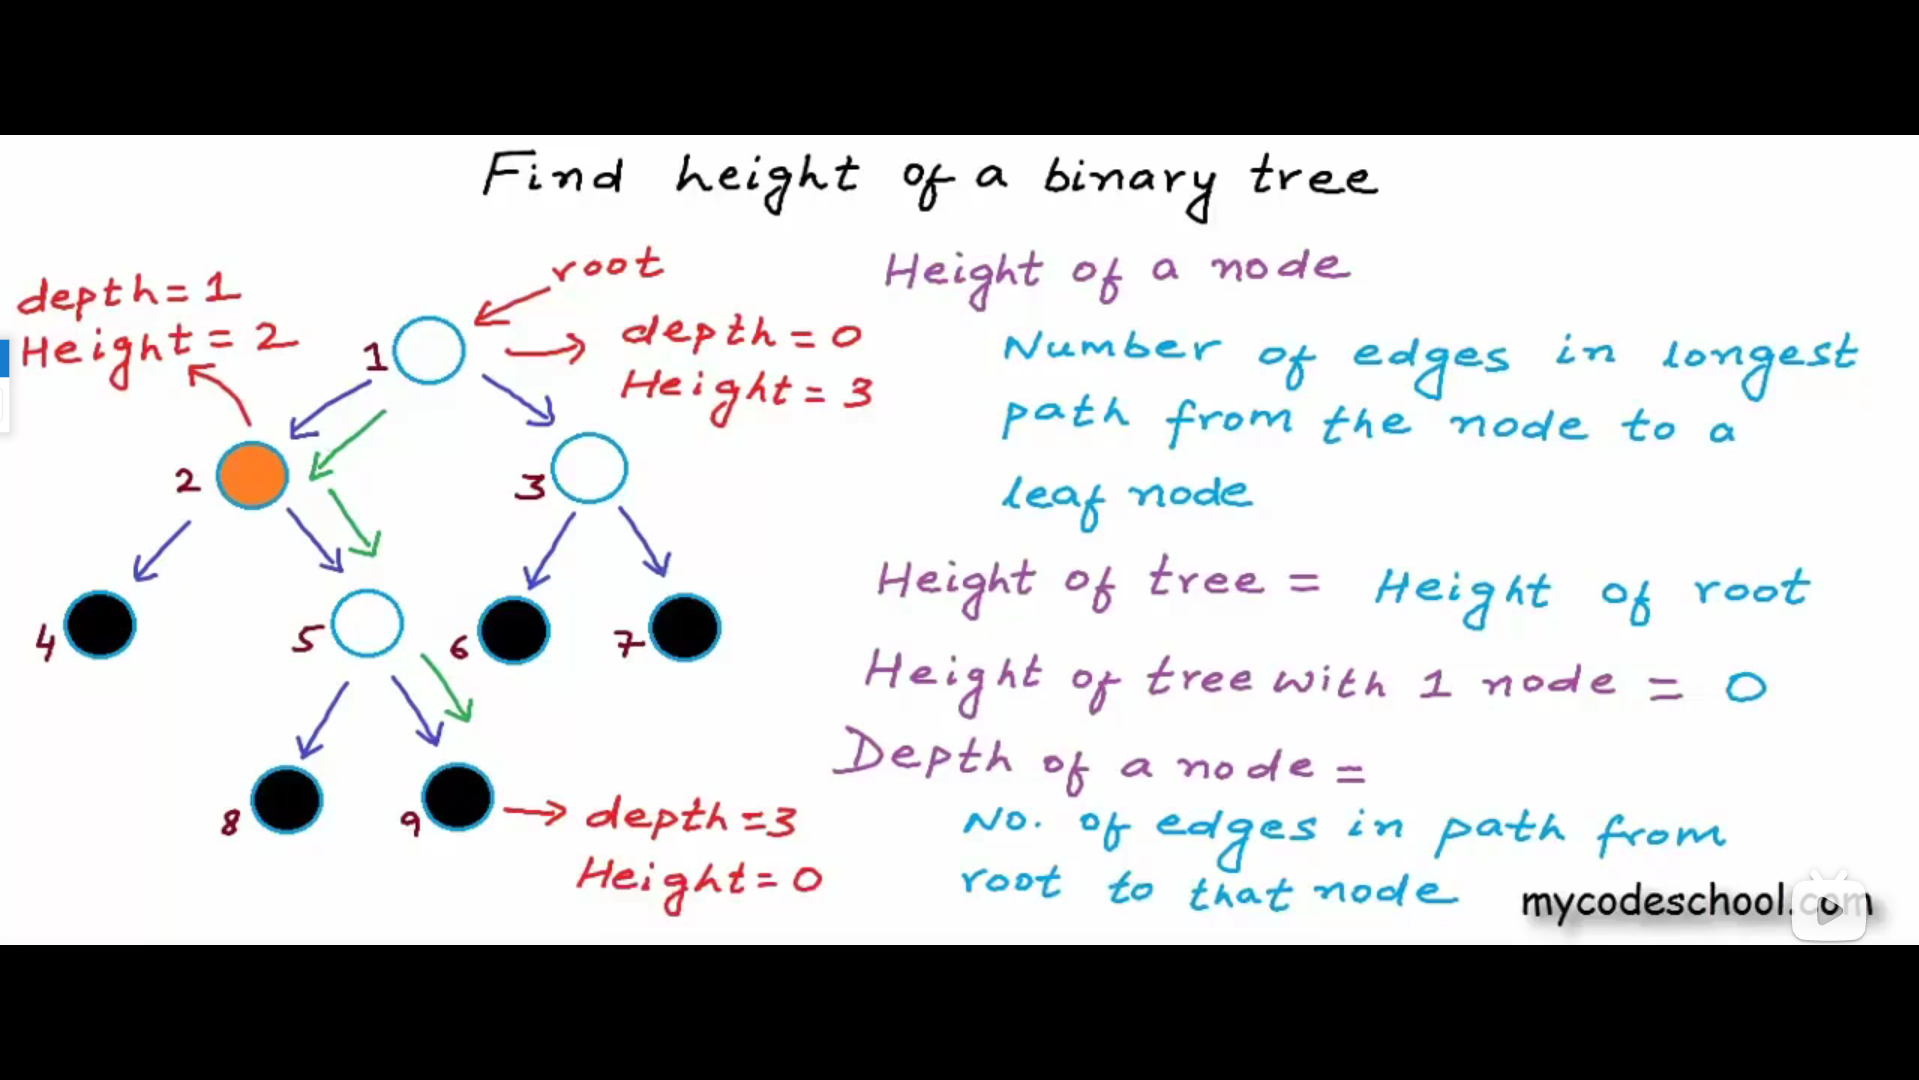 Find height of a binary tree
root
depth=1
Height=2
1
depth=0
Height=3
2
3
4
5
6
7
8
9
depth=3
Height=0
Height of a node
Number of edges in longest
path from the node to a
leaf node
Height of tree = Height of root
Height of tree with 1 node = 0
Depth of a node =
No. of edges in path from
root to that node
mycodeschool.com